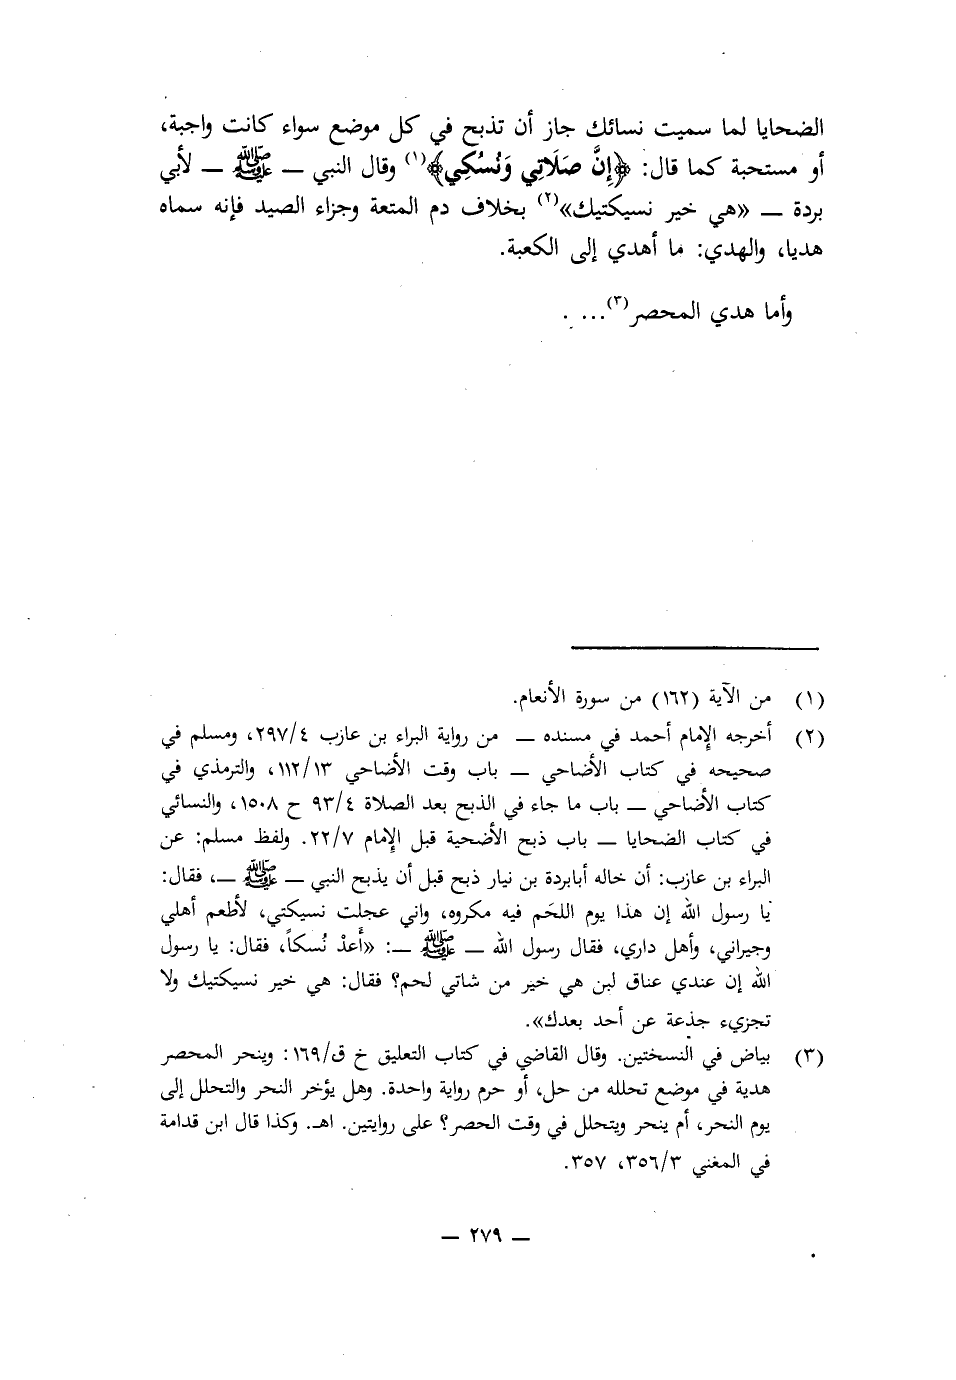 الضحايا لما سميت نسائك جاز أن تذبح في كل موضع سواء كانت واجبة،
أو مستحبة كما قال: ﴿إِنَّ صَلَاتِي وَنُسُكِي﴾(١) وقال النبي — ﷺ — لأبي
بردة — «هي خير نسيكتيك»(٢) بخلاف دم المتعة وجزاء الصيد فإنه سماه
هديا، والهدي: ما أهدي إلى الكعبة.
وأما هدي المحصر(٣)... .
(١) من الآية (١٦٢) من سورة الأنعام.
(٢) أخرجه الإمام أحمد في مسنده — من رواية البراء بن عازب ٢٩٧/٤، ومسلم في
صحيحه في كتاب الأضاحي — باب وقت الأضاحي ١١٢/١٣، والترمذي في
كتاب الأضاحي — باب ما جاء في الذبح بعد الصلاة ٩٣/٤ ح ١٥٠٨، والنسائي
في كتاب الضحايا — باب ذبح الأضحية قبل الإمام ٢٢/٧. ولفظ مسلم: عن
البراء بن عازب: أن خاله أبابردة بن نيار ذبح قبل أن يذبح النبي — ﷺ —، فقال:
يا رسول الله إن هذا يوم اللحَم فيه مكروه، واني عجلت نسيكتي، لأطعم أهلي
وجيراني، وأهل داري، فقال رسول الله — ﷺ —: «أَعدْ نُسكاً، فقال: يا رسول
الله إن عندي عناق لبن هي خير من شاتي لحم؟ فقال: هي خير نسيكتيك ولا
تجزيء جذعة عن أحد بعدك».
(٣) بياض في النسختين. وقال القاضي في كتاب التعليق خ ق/١٦٩: وينحر المحصر
هدية في موضع تحلله من حل، أو حرم رواية واحدة. وهل يؤخر النحر والتحلل إلى
يوم النحر، أم ينحر ويتحلل في وقت الحصر؟ على روايتين. اهـ. وكذا قال ابن قدامة
في المغني ٣٥٦/٣، ٣٥٧.
— ٢٧٩ —